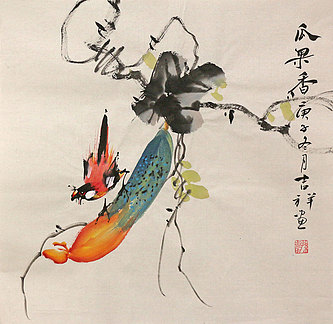 瓜果香庚子冬月吉祥画